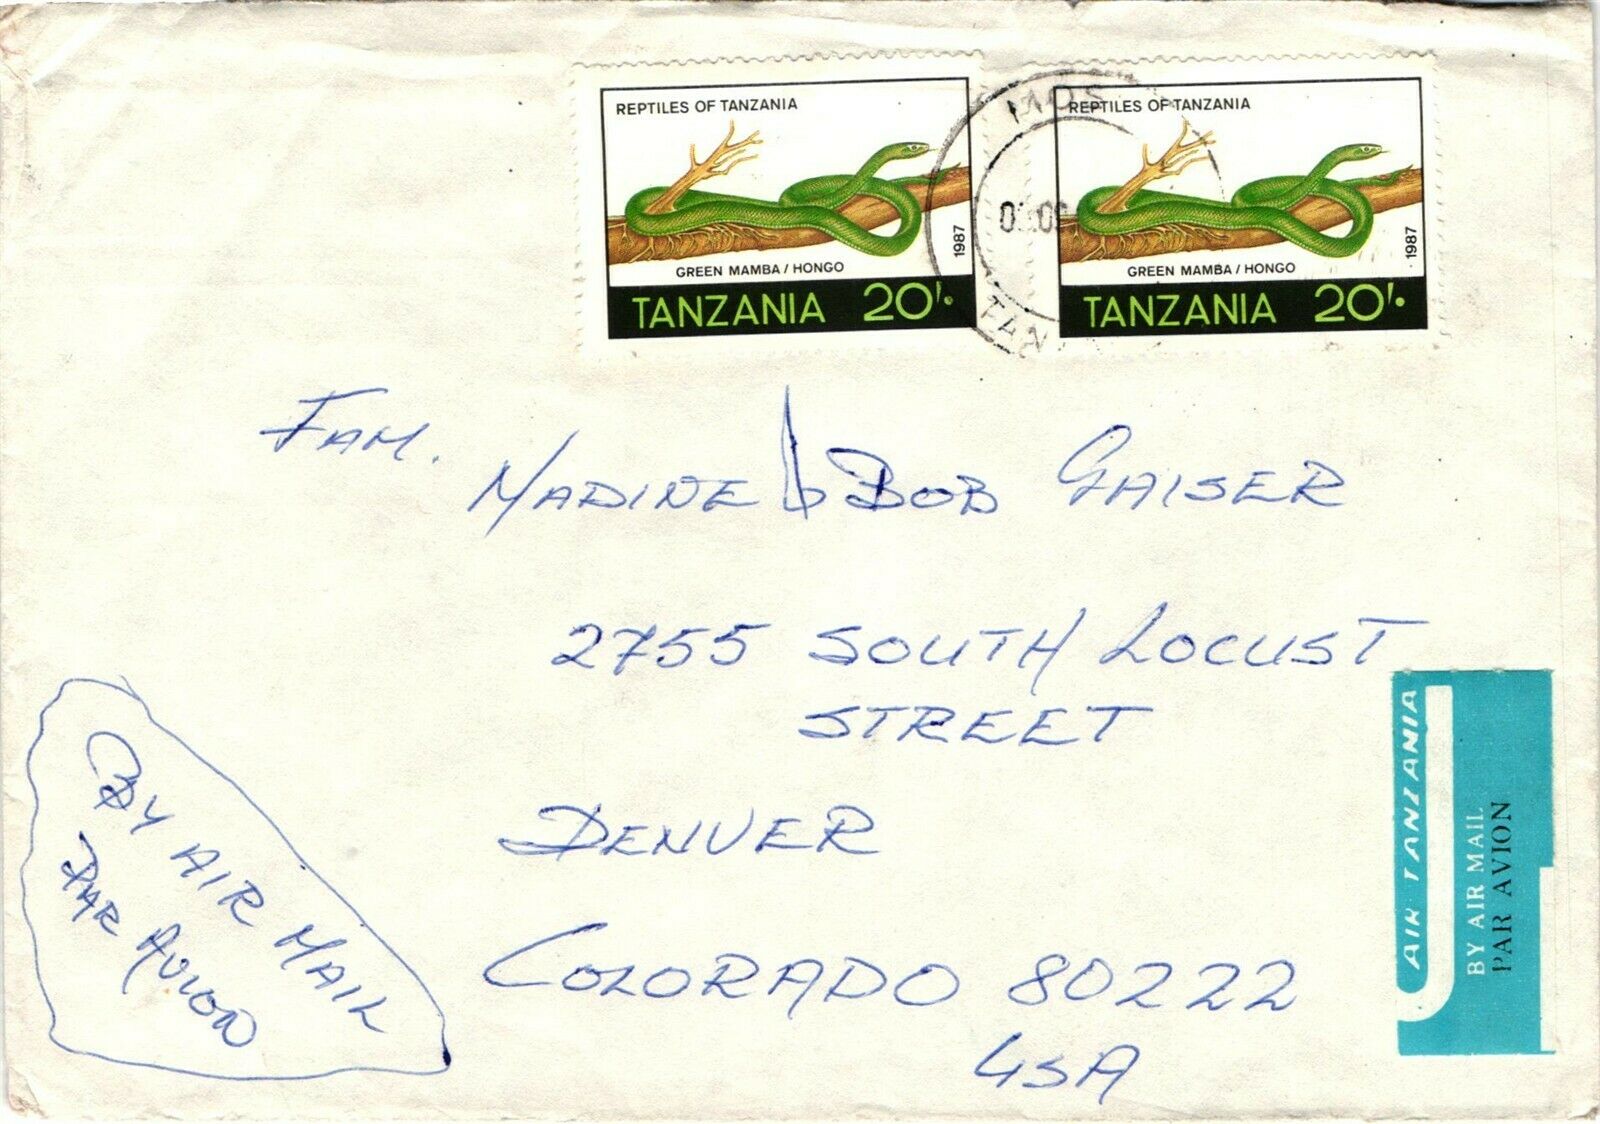 REPTILES OF TANZANIA
GREEN MAMBA / HONGO
1987
TANZANIA 20/.
REPTILES OF TANZANIA
GREEN MAMBA / HONGO
1987
TANZANIA 20/.
FAM.
MADINE & BOB GAISER
2755 SOUTH LOCUST
STREET
DENVER
COLORADO 80222
USA
BY AIR MAIL
PAR AVION
AIR TANZANIA
BY AIR MAIL
PAR AVION